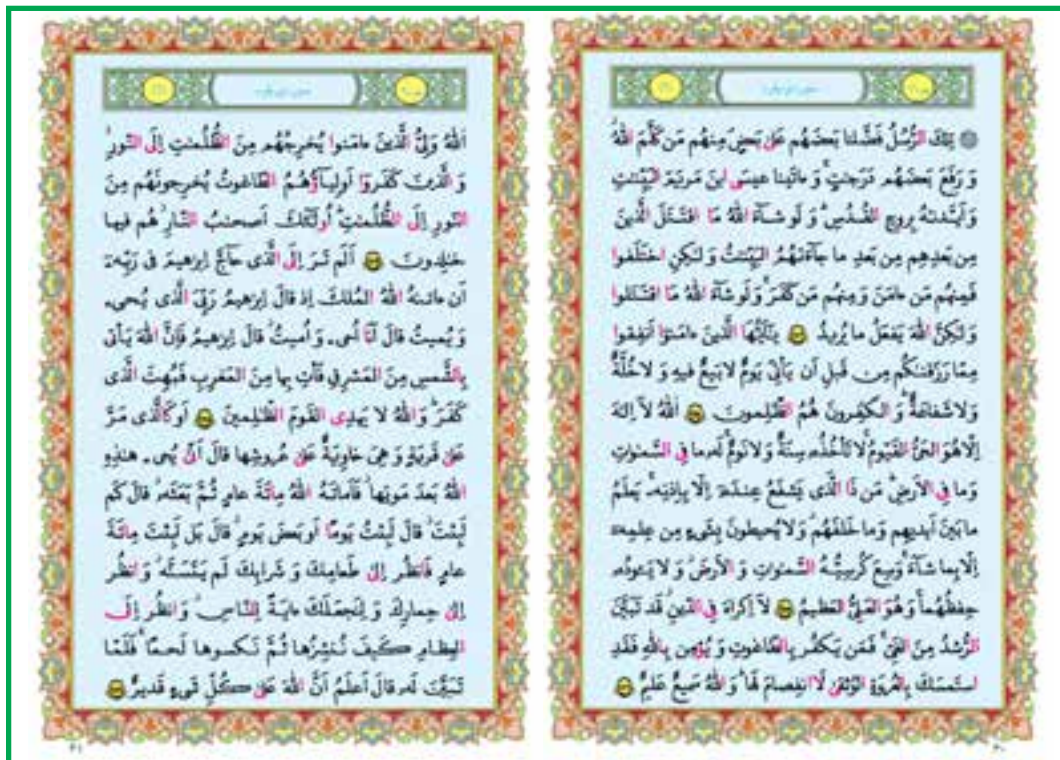 تِلكَ الرُّسُلُ فَضَّلنا بَعضَهُم عَلىٰ بَعضٍ مِنهُم مَن كَلَّمَ اللهُ
وَ رَفَعَ بَعضَهُم دَرَجٰتٍ وَ ءاتَینا عیسَی ابنَ مَریَمَ البَیِّنٰتِ
وَ اَیَّدنٰهُ بِروحِ القُدُسِ وَ لَو شـآءَ اللهُ مَا اقتَتَلَ الَّذینَ
مِن بَعدِهِم مِن بَعدِ ما جآءَتهُمُ البَیِّنٰتُ وَ لٰکِنِ اختَلَفوا
فَمِنهُم مَن ءامَنَ وَ مِنهُم مَن کَفَرَ وَ لَو شآءَ اللهُ مَا اقتَتَلوا
وَ لٰکِنَّ اللهَ یَفعَلُ ما یُریدُ یٰاَیُّهَا الَّذینَ ءامَنوا اَنفِقوا
مِمّا رَزَقنٰکُم مِن قَبلِ اَن یَأتِیَ یَومٌ لا بَیعٌ فیهِ وَ لا خُلَّةٌ
وَ لا شَفاعَةٌ وَ الکٰفِرونَ هُمُ الظّٰلِمونَ اَللهُ لآ اِلٰهَ
اِلّا هُوَ الحَیُّ القَیّومُ لا تَأخُذُه سِنَةٌ وَ لا نَومٌ لَه ما فِی السَّمٰوٰتِ
وَ ما فِی الاَرضِ مَن ذَا الَّذی یَشفَعُ عِندَهٓ اِلّا بِاِذنِه یَعلَمُ
ما بَینَ اَیدیهِم وَ ما خَلفَهُم وَ لا یُحیطونَ بِشَیءٍ مِن عِلمِهٓ
اِلّا بِما شآءَ وَسِعَ کُرسِیُّهُ السَّمٰوٰتِ وَ الاَرضَ وَ لا یَئودُه
حِفظُهُما وَ هُوَ العَلِیُّ العَظیمُ لآ اِکراهَ فِی الدّینِ قَد تَبَیَّنَ
الرُّشدُ مِنَ الغَیِّ فَمَن یَکفُر بِالطّاغوتِ وَ یُؤمِن بِاللهِ فَقَدِ
استَمسَکَ بِالعُروَةِ الوُثقیٰ لَا انفِصامَ لَها وَ اللهُ سَمیعٌ عَلیمٌ
۴۰
اَللهُ وَلِیُّ الَّذینَ ءامَنوا یُخرِجُهُم مِنَ الظُّلُمٰتِ اِلَی النّورِ
وَ الَّذینَ کَفَروا اَولِیـآؤُهُمُ الطّاغوتُ یُخرِجونَهُم مِنَ
النّورِ اِلَی الظُّلُمٰتِ اُولٰٓئِکَ اَصحٰبُ النّارِ هُم فیها
خٰلِدونَ اَلَم تَرَ اِلَی الَّذی حآجَّ اِبرٰهیمَ فی رَبِّهٓ
اَن ءاتىٰهُ اللهُ المُلکَ اِذ قالَ اِبرٰهیمُ رَبِّیَ الَّذی یُحیی
وَ یُمیتُ قالَ اَنَا اُحیی وَ اُمیتُ قالَ اِبرٰهیمُ فَاِنَّ اللهَ یَأتی
بِالشَّمسِ مِنَ المَشرِقِ فَأتِ بِها مِنَ المَغرِبِ فَبُهِتَ الَّذی
کَفَرَ وَ اللهُ لا یَهدِی القَومَ الظّٰلِمینَ اَو کَالَّذی مَرَّ
عَلىٰ قَریَةٍ وَ هِیَ خاوِیَةٌ عَلىٰ عُروشِها قالَ اَنّىٰ یُحیی هٰذِهِ
اللهُ بَعدَ مَوتِها فَاَماتَهُ اللهُ مِائَةَ عامٍ ثُمَّ بَعَثَه قالَ کَم
لَبِثتَ قالَ لَبِثتُ یَومًا اَو بَعضَ یَومٍ قالَ بَل لَبِثتَ مِائَةَ
عامٍ فَانظُر اِلىٰ طَعامِکَ وَ شَرابِکَ لَم یَتَسَنَّه وَ انظُر
اِلىٰ حِمارِکَ وَ لِنَجعَلَکَ ءایَةً لِلنّاسِ وَ انظُر اِلَی
العِظامِ کَیفَ نُنشِزُها ثُمَّ نَکسوها لَحمًا فَلَمّا
تَبَیَّنَ لَه قالَ اَعلَمُ اَنَّ اللهَ عَلىٰ کُلِّ شَیءٍ قَدیرٌ
۴۱